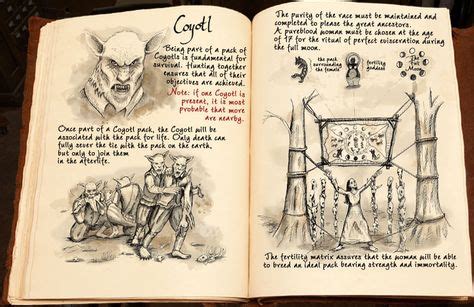 Coyotl
Being part of a pack of
Coyotls is fundamental for
survival. Hunting together
ensures that all of their
objectives are achieved.
Note: if one Coyotl is
present, it is most
probable that more
are nearby.
Once part of a Coyotl pack, the Coyotl will be
associated with the pack for life. Only death can
fully sever the tie with the pack on the earth,
but only to join them
in the afterlife.
The purity of the race must be maintained and
completed to please the great ancestors.
A pureblood woman must be chosen at the age
of 17 for the ritual of perfect evisceration during
the full moon.
the pack
surrounding
the female
fertility
goddess
The full
moon
The fertility matrix assures that the woman will be able
to breed an ideal pack bearing strength and immortality.